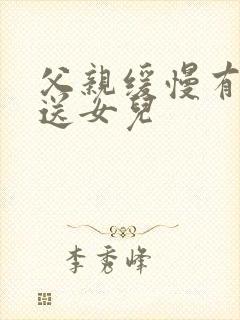 父親緩慢有
送女兒
李秀峰